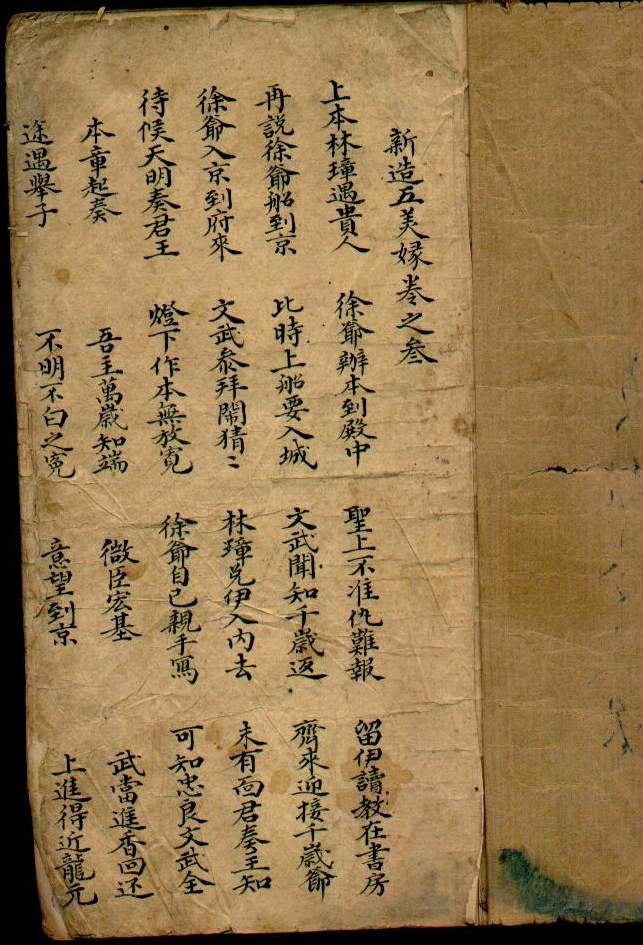 新造五美緣卷之叁
上本林璋遇貴人 徐爺辦本到殿中 聖上不准仇難報 留伊讀教在書房
再説徐爺船到京 比時上船要入城 文武聞知千歲返 齊來迎接千歲爺
徐爺入京到府來 文武叅拜鬧猜〻 林璋兑伊入内去 未有面君奏王知
待候天明奏君王 燈下作本無放寬 徐爺自已親手寫 可知忠良文武全
本章起奏 吾主萬歲知端 微臣宏基 武當進香回还
途遇舉子 不明不白之寃 意望到京 上進得近龍元